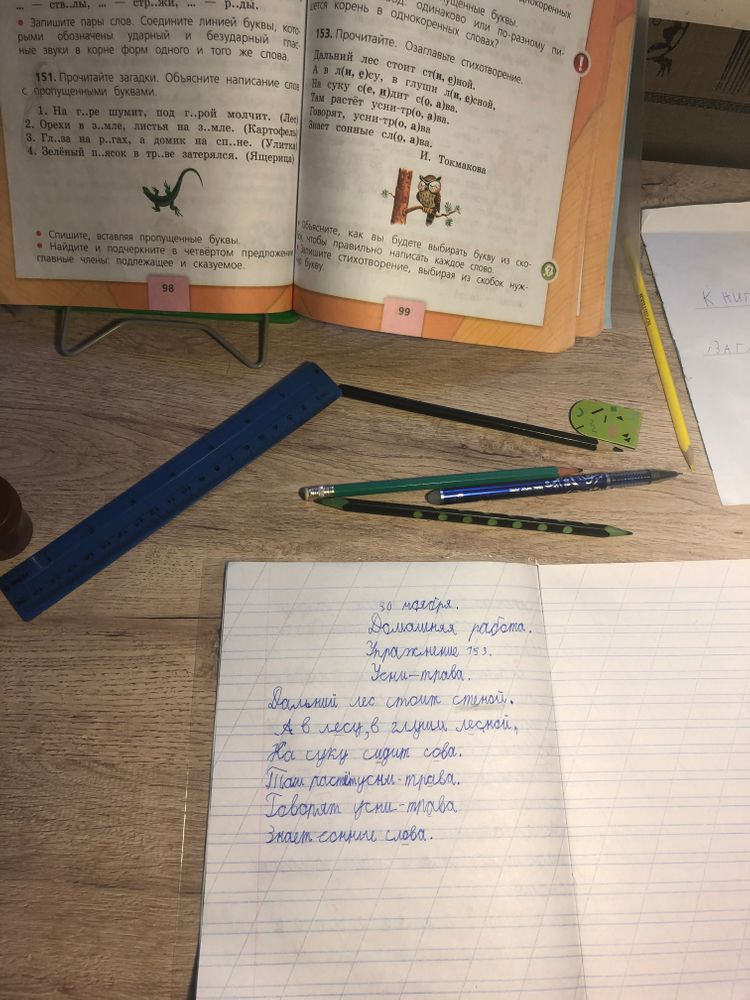 ... — ств..лы, ... — стр..жи, ... — р..ды.
• Запишите пары слов. Соедините линией буквы, кото-
рыми обозначены ударный и безударный глас-
ные звуки в корне форм одного и того же слова.
151. Прочитайте загадки. Объясните написание слов
с пропущенными буквами.
1. На г..ре шумит, под г..рой молчит. (Лес)
2. Орехи в з..мле, листья на з..мле. (Картофель)
3. Гл..за на р..гах, а домик на сп..не. (Улитка)
4. Зелёный п..ясок в тр..ве затерялся. (Ящерица)
• Спишите, вставляя пропущенные буквы.
• Найдите и подчеркните в четвёртом предложении
главные члены: подлежащее и сказуемое.
98
одинаково или по-разному пи-
шется корень в однокоренных словах?
153. Прочитайте. Озаглавьте стихотворение.
Дальний лес стоит ст(и, е)ной.
А в л(и, е)су, в глуши л(и, е)сной,
На суку с(е, и)дит с(о, а)ва.
Там растёт усни-тр(о, а)ва.
Говорят, усни-тр(о, а)ва
Знает сонные сл(о, а)ва.
И. Токмакова
• Объясните, как вы будете выбирать букву из ско-
чтобы правильно написать каждое слово.
Запишите стихотворение, выбирая из скобок нуж-
букву.
99
30 ноября.
Домашняя работа.
Упражнение 153.
Усни-трава.
Дальний лес стоит стеной.
А в лесу, в глуши лесной,
На суку сидит сова.
Там растёт усни-трава.
Говорят усни-трава
Знает сонные слова.